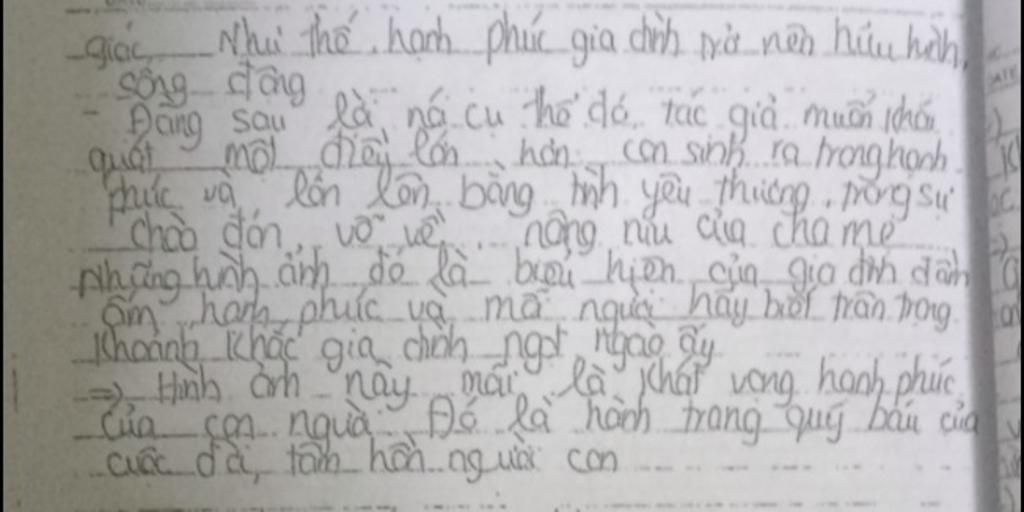 giác. Như thế, hạnh phúc gia đình trở nên hữu hình,
sống động
- Đằng sau là cụ thể đó, tác giả muốn khái
quát một điều lớn hơn con sinh ra trong hạnh
phúc và lớn lên bằng tình yêu thương, trong sự
chào đón, vỗ về, nâng niu của cha mẹ
Những hình ảnh đó là biểu hiện của gia đình đầm
ấm, hạnh phúc và mỗi người hãy biết trân trọng
khoảnh khắc gia đình ngọt ngào ấy
=> Hình ảnh này mãi là khát vọng hạnh phúc
của con người. Đó là hành trang quý báu của
cuộc đời, tâm hồn người con